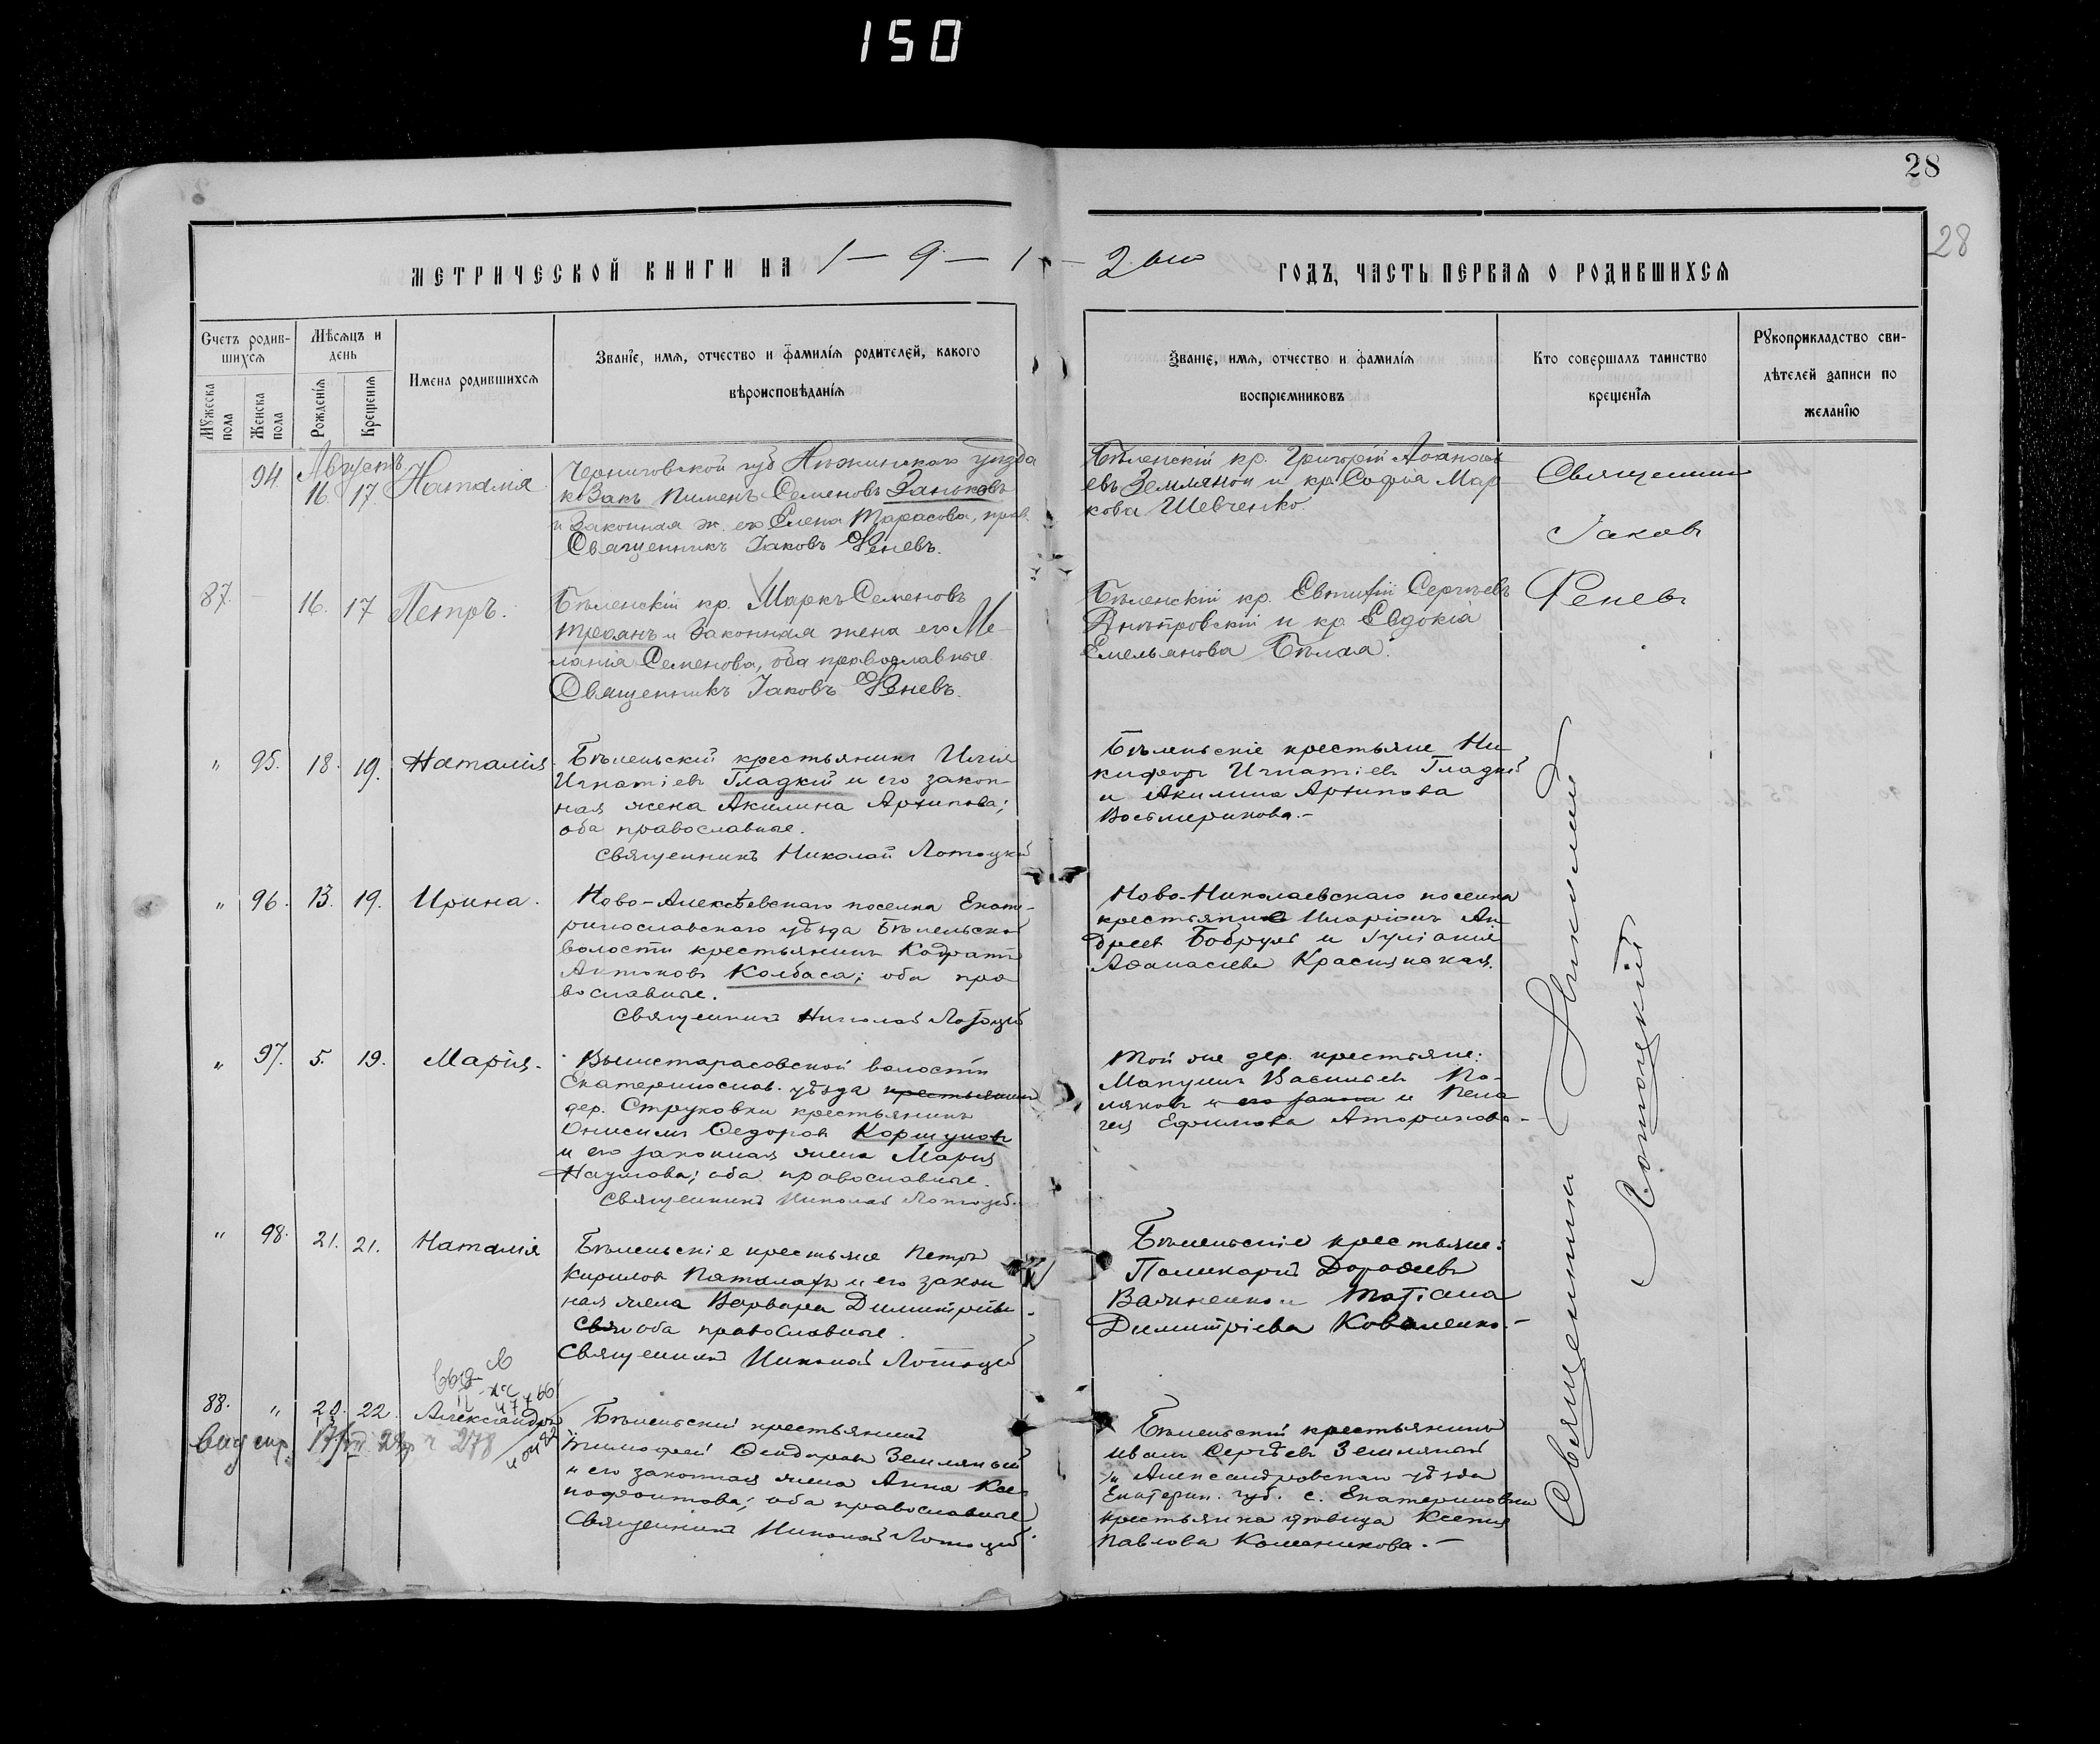 150
28
28
МЕТРИЧЕСКОЙ КНИГИ НА 1 — 9 — 1 — 2 ый ГОДЪ, ЧАСТЬ ПЕРВАЯ О РОДИВШИХСЯ
Счетъ родив-
шихся
Мѣсяцъ и
день
Мужеска
пола
Женска
пола
Рожденія
Крещенія
Имена родившихся
Званіе, имя, отчество и фамилія родителей, какого
вѣроисповѣданія
Званіе, имя, отчество и фамилія
воспріемниковъ
Кто совершалъ таинство
крещенія
Рукоприкладство сви-
дѣтелей записи по
желанію
Августъ
94. 16. 17. Наталія
Черниговской губ Нѣжинскаго уѣзда
кзакъ Пименъ Семеновъ Заньковъ
и законная ж. его Елена Тарасова, прав.
Священникъ Іаковъ Феневъ.
Бѣленскій кр. Григорій Аѳанась
евъ Земляной и кр. Софія Мар
кова Шевченко.
Священникъ
Іаковъ
Феневъ
87. — 16. 17 Петръ.
Бѣленскій кр. Маркъ Семеновъ
Троянъ и законная жена его Ме-
ланія Семенова, оба православные
Священникъ Іаковъ Феневъ.
Бѣленскій кр. Евтифій Сергѣевъ
Днѣпровскій и кр Евдокія
Емельянова Бѣлая.
" 95. 18. 19. Наталія.
Бѣленьскій крестьянинъ Илія
Игнатіевъ Гладкій и его закон-
ная жена Акилина Архипова;
оба православные.
Священникъ Николай Лотоцкій
Бѣленьскіе крестьяне Ни-
кифоръ Игнатіевъ Гладкій
и Акилина Архипова
Восьмерикова.-
" 96. 13. 19. Ирина.
Ново-Алексѣевскаго поселка Екате-
ринославскаго уѣзда Бѣленьской
волости крестьянинъ Кодратъ
Антоновъ Колбаса; оба пра
вославные.
Священникъ Николай Лотоцкій
Ново-Николаевскаго поселка
крестьяние Иларіонъ Ан-
дреевъ Бобруль и Іуліанія
Аѳанасіева Красицкая.
" 97. 5. 19. Марія.
Вышетарасовской волости
Екатеринослав. уѣзда крестьянинъ
дер. Струковки крестьянинъ
Онисимъ Ѳедоровъ Коршуновъ
и его законная жена Марія
Наумова; оба православные.
Священникъ Николай Лотоцкій.
Той же дер. крестьяне:
Мануилъ Васильевъ По-
ляковъ и его законн и Пела
гея Ефимова
" 98. 21. 21. Наталія
Бѣленьскіе крестьяне Петръ
Кириловъ Паталахъ и его закон
ная жена Варвара Димитріева
Свян оба православные.
Священникъ Николай Лотоцкій
Бѣленьскіе крестьяне:
Поликарпъ Дороѳеевъ
и Татіана
Димитріева Коваленко.-
88. " 20. 22. Александръ
278
Бѣленьскій крестьянинъ
Тимоѳей Ѳеодоровъ Земляный
и его законная жена Анна Ксе-
нофонтова; оба православные
Священникъ Николай Лотоцкій.
Бѣленьскій крестьянинъ
Иванъ Сергѣевъ Земляный
и Александровскаго уѣзда
Екатерин. губ. с. Екатериновки
крестьянка дѣвица Ксенія
Павлова Коженикова.-
Священникъ Николай
Лотоцкій